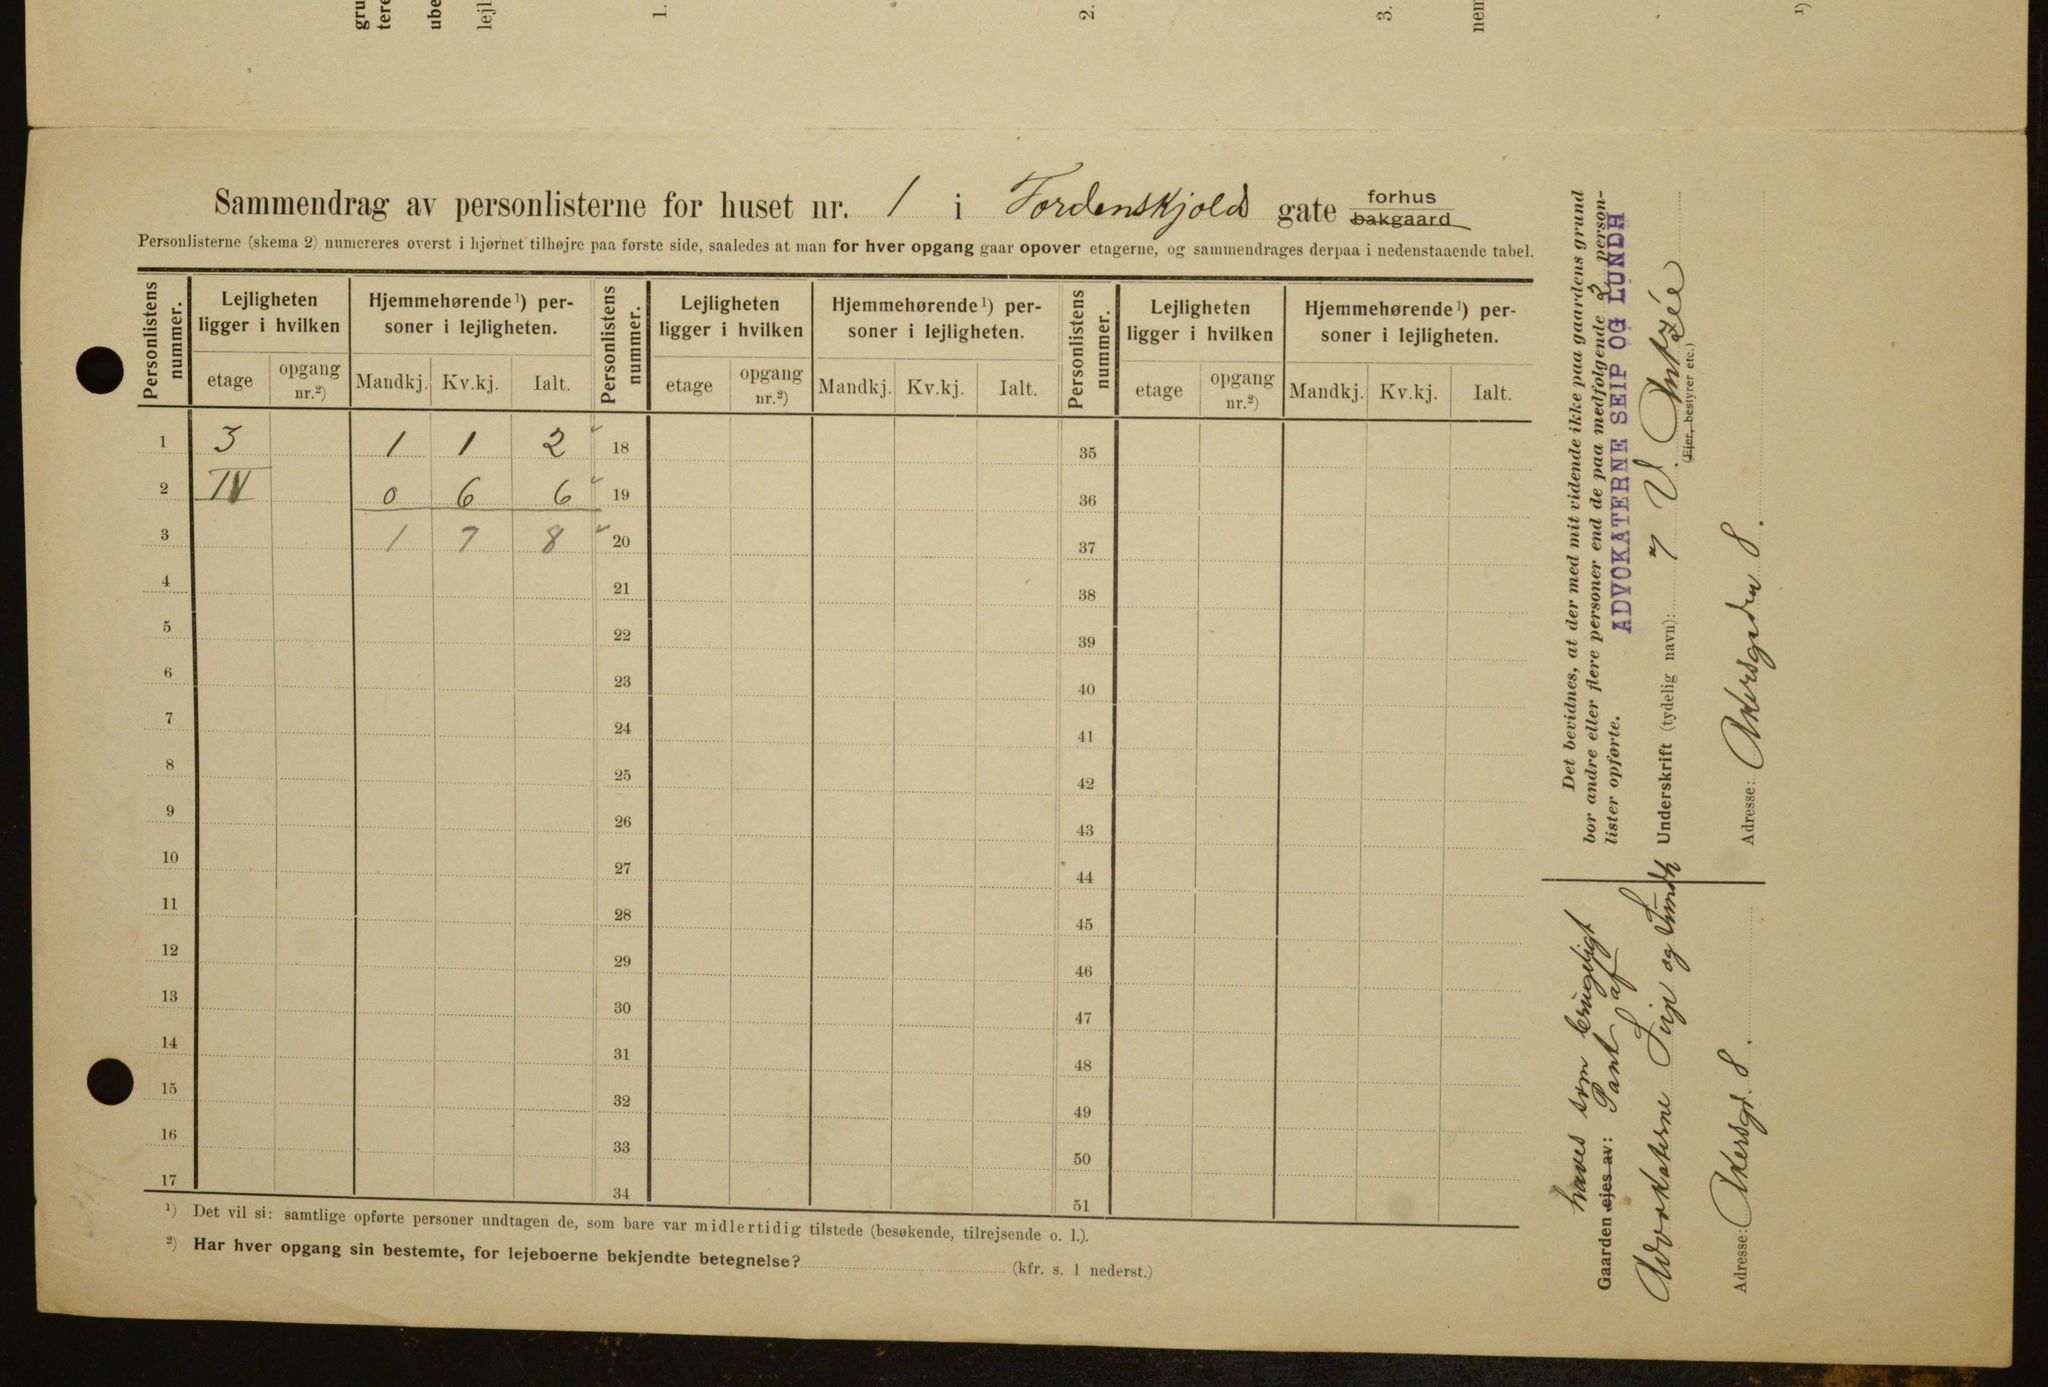 gru
tere
ube
lejl
1.
2.
3.
nem
1)
Sammendrag av personlisterne for huset nr. 1 i Tordenskjolds gate forhus bakgaard
Personlisterne (skema 2) numereres øverst i hjørnet tilhøjre paa første side, saaledes at man for hver opgang gaar opover etagerne, og sammendrages derpaa i nedenstaaende tabel.
Personlistens nummer. Lejligheten ligger i hvilken Hjemmehørende¹) personer i lejligheten. Personlistens nummer. Lejligheten ligger i hvilken Hjemmehørende¹) personer i lejligheten. Personlistens nummer. Lejligheten ligger i hvilken Hjemmehørende¹) personer i lejligheten.
etage opgang nr.²) Mandkj. Kv.kj. Ialt. etage opgang nr.²) Mandkj. Kv.kj. Ialt. etage opgang nr.²) Mandkj. Kv.kj. Ialt.
1 3 1 1 2 18 35
2 IV 0 6 6 19 36
3 1 7 8 20 37
4 21 38
5 22 39
6 23 40
7 24 41
8 25 42
9 26 43
10 27 44
11 28 45
12 29 46
13 30 47
14 31 48
15 32 49
16 33 50
17 34 51
¹) Det vil si: samtlige opførte personer undtagen de, som bare var midlertidig tilstede (besøkende, tilrejsende o. l.).
²) Har hver opgang sin bestemte, for lejeboerne bekjendte betegnelse? (kfr. s. 1 nederst.)
Det bevidnes, at der med mit vidende ikke paa gaardens grund
bor andre eller flere personer end de paa medfølgende 2 person-
lister opførte.
ADVOKATERNE SEIP OG LUNDH
Underskrift (tydelig navn):
(Ejer, bestyrer etc.)
Adresse: Akersgaden 8.
haves som brugeligt
Gaarden ejes av: Pant af
Advokaterne Seip og Lundh
Adresse: Akersgt. 8.